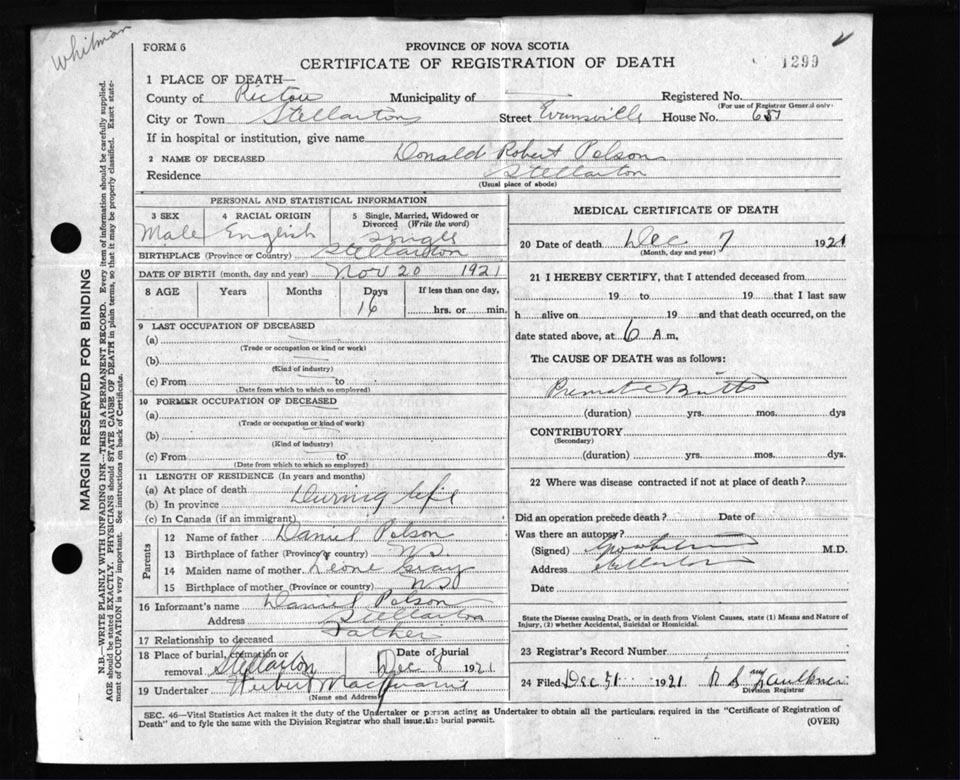 Whitman
FORM 6
PROVINCE OF NOVA SCOTIA
CERTIFICATE OF REGISTRATION OF DEATH
1299
1 PLACE OF DEATH—
County of Pictou Municipality of Registered No.
(For use of Registrar General only)
City or Town Stellarton Street Evansville House No. 651
If in hospital or institution, give name
2 NAME OF DECEASED Donald Robert Pelson
Residence Stellarton
(Usual place of abode)
PERSONAL AND STATISTICAL INFORMATION
3 SEX 4 RACIAL ORIGIN 5 Single, Married, Widowed or Divorced (Write the word)
Male English Single
BIRTHPLACE (Province or Country) Stellarton
DATE OF BIRTH (month, day and year) Nov 20 1921
8 AGE Years Months Days If less than one day,
16 hrs. or min.
9 LAST OCCUPATION OF DECEASED
(a)
(Trade or occupation or kind or work)
(b)
(Kind of industry)
(c) From to
(Date from which to which so employed)
10 FORMER OCCUPATION OF DECEASED
(a)
(Trade or occupation or kind of work)
(b)
(Kind of industry)
(c) From to
(Date from which to which so employed)
11 LENGTH OF RESIDENCE (In years and months)
(a) At place of death
(b) In province During life
(c) In Canada (if an immigrant)
Parents
12 Name of father Daniel Pelson
13 Birthplace of father (Province or country) NS
14 Maiden name of mother Leone Gray
15 Birthplace of mother (Province or country) NS
16 Informant's name Daniel Pelson
Address Stellarton
17 Relationship to deceased Father
18 Place of burial, cremation or removal Stellarton Date of burial Dec 8 1921
19 Undertaker
(Name and Address)
MEDICAL CERTIFICATE OF DEATH
20 Date of death Dec 7 1921
(Month, day and year)
21 I HEREBY CERTIFY, that I attended deceased from
19 to 19 that I last saw
h alive on 19 and that death occurred, on
date stated above, at 6 A m.
The CAUSE OF DEATH was as follows:
(duration) yrs. mos. dys
CONTRIBUTORY
(Secondary)
(duration) yrs. mos. dys.
22 Where was disease contracted if not at place of death?
Did an operation precede death? Date of
Was there an autopsy?
(Signed) M.D.
Address Stellarton
Date
State the Disease causing Death, or in death from Violent Causes, state (1) Means and Nature of
Injury, (2) whether Accidental, Suicidal or Homicidal.
23 Registrar's Record Number
24 Filed Dec 31 1921 Faulkner
Division Registrar
SEC. 46—Vital Statistics Act makes it the duty of the Undertaker or person acting as Undertaker to obtain all the particulars required in the "Certificate of Registration of
Death" and to fyle the same with the Division Registrar who shall issue the burial permit.
(OVER)
MARGIN RESERVED FOR BINDING
N.B.—WRITE PLAINLY WITH UNFADING INK—THIS IS A PERMANENT RECORD. Every item of information should be carefully supplied.
AGE should be stated EXACTLY. PHYSICIANS should STATE CAUSE OF DEATH in plain terms, so that it may be properly classified. Exact state-
ment of OCCUPATION is very important. See instructions on back of Certificate.